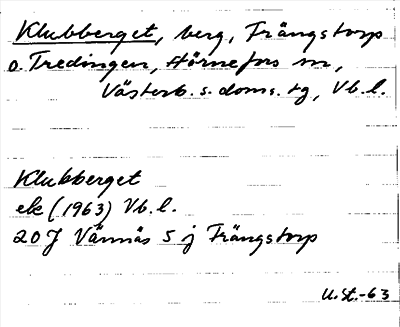 Klubberget, berg, Frängstorp
o. Tredingen, Hörnefors sn,
Västerb. s. doms. tg, Vb. l.
Klubberget
ek (1963) Vb. l.
20 J Vännäs 5 j Frängstorp
U.St.-63